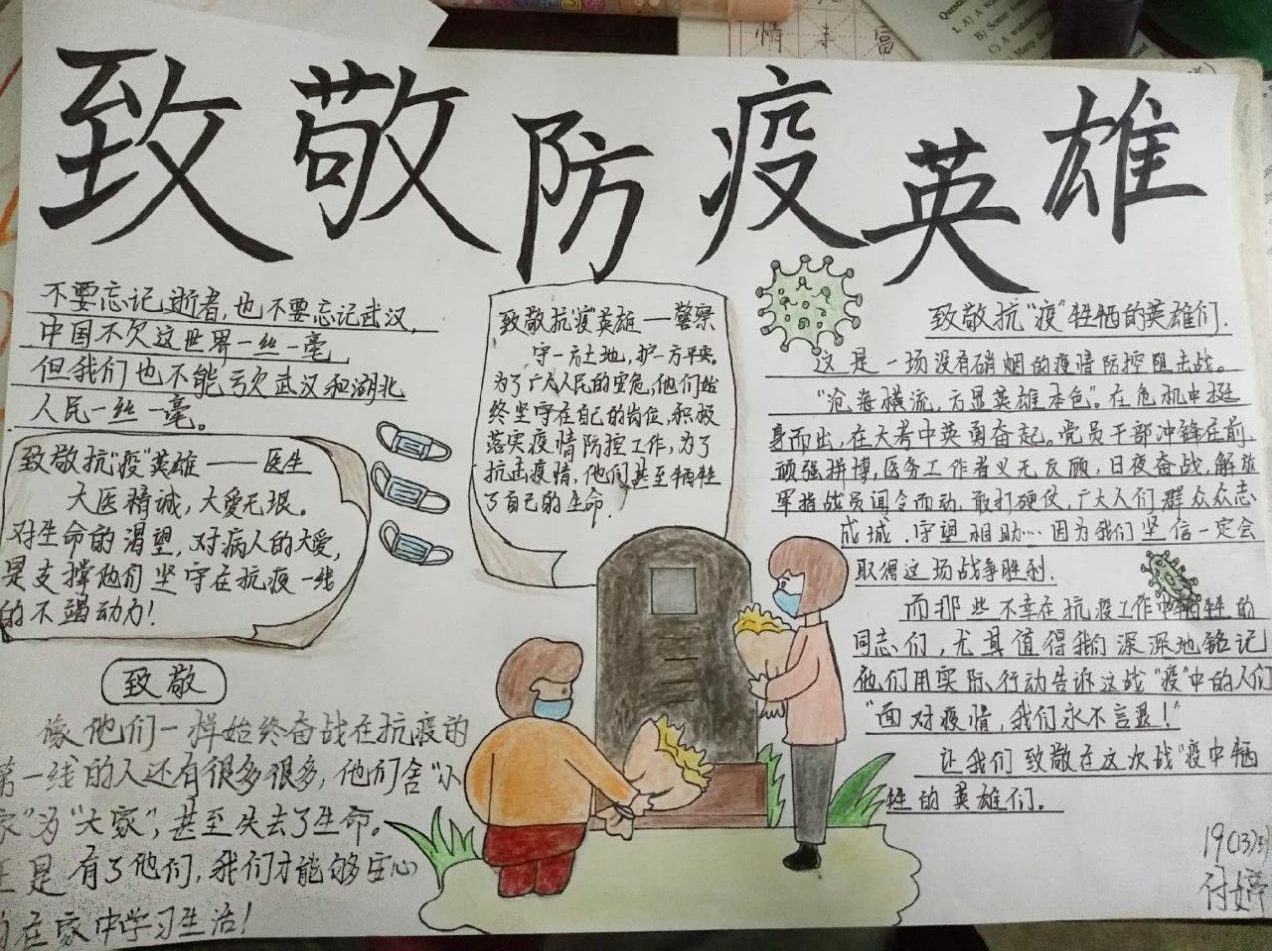 致敬防疫英雄
不要忘记逝者,也不要忘记武汉,
中国不欠这世界一丝一毫
但我们也不能亏欠武汉和湖北
人民一丝一毫。
致敬抗"疫"英雄——医生
大医精诚,大爱无垠。
对生命的渴望,对病人的大爱,
是支撑他们坚守在抗疫一线
的不竭动力!
致敬
像他们一样始终奋战在抗疫的
第一线的人还有很多很多,他们舍"小
家"为"大家",甚至失去了生命。
正是有了他们,我们才能够安心
的在家中学习生活!
致敬抗"疫"英雄——警察
守一方土地,护一方平安。
为了广大人民的安危,他们始
终坚守在自己的岗位,积极
落实疫情防控工作,为了
抗击疫情,他们甚至牺牲
了自己的生命!
致敬抗"疫"牲牺的英雄们.
这是一场没有硝烟的疫情防控阻击战。
"沧海横流,方显英雄本色"。在危机中挺
身而出,在大考中英勇奋起。党员干部冲锋在前,
顽强拼博,医务工作者义无反顾,日夜奋战,解放
军指战员闻令而动,敢打硬仗,广大人们群众众志
成城,守望相助…因为我们坚信一定会
取得这场战争胜利.
而那些不幸在抗疫工作中牺牲的
同志们,尤其值得我们深深地铭记
他们用实际行动告诉这战"疫"中的人们
"面对疫情,我们永不言退!"
让我们致敬在这次战"疫中牺
牲的英雄们。
19(13)
付婷
情 丰 富